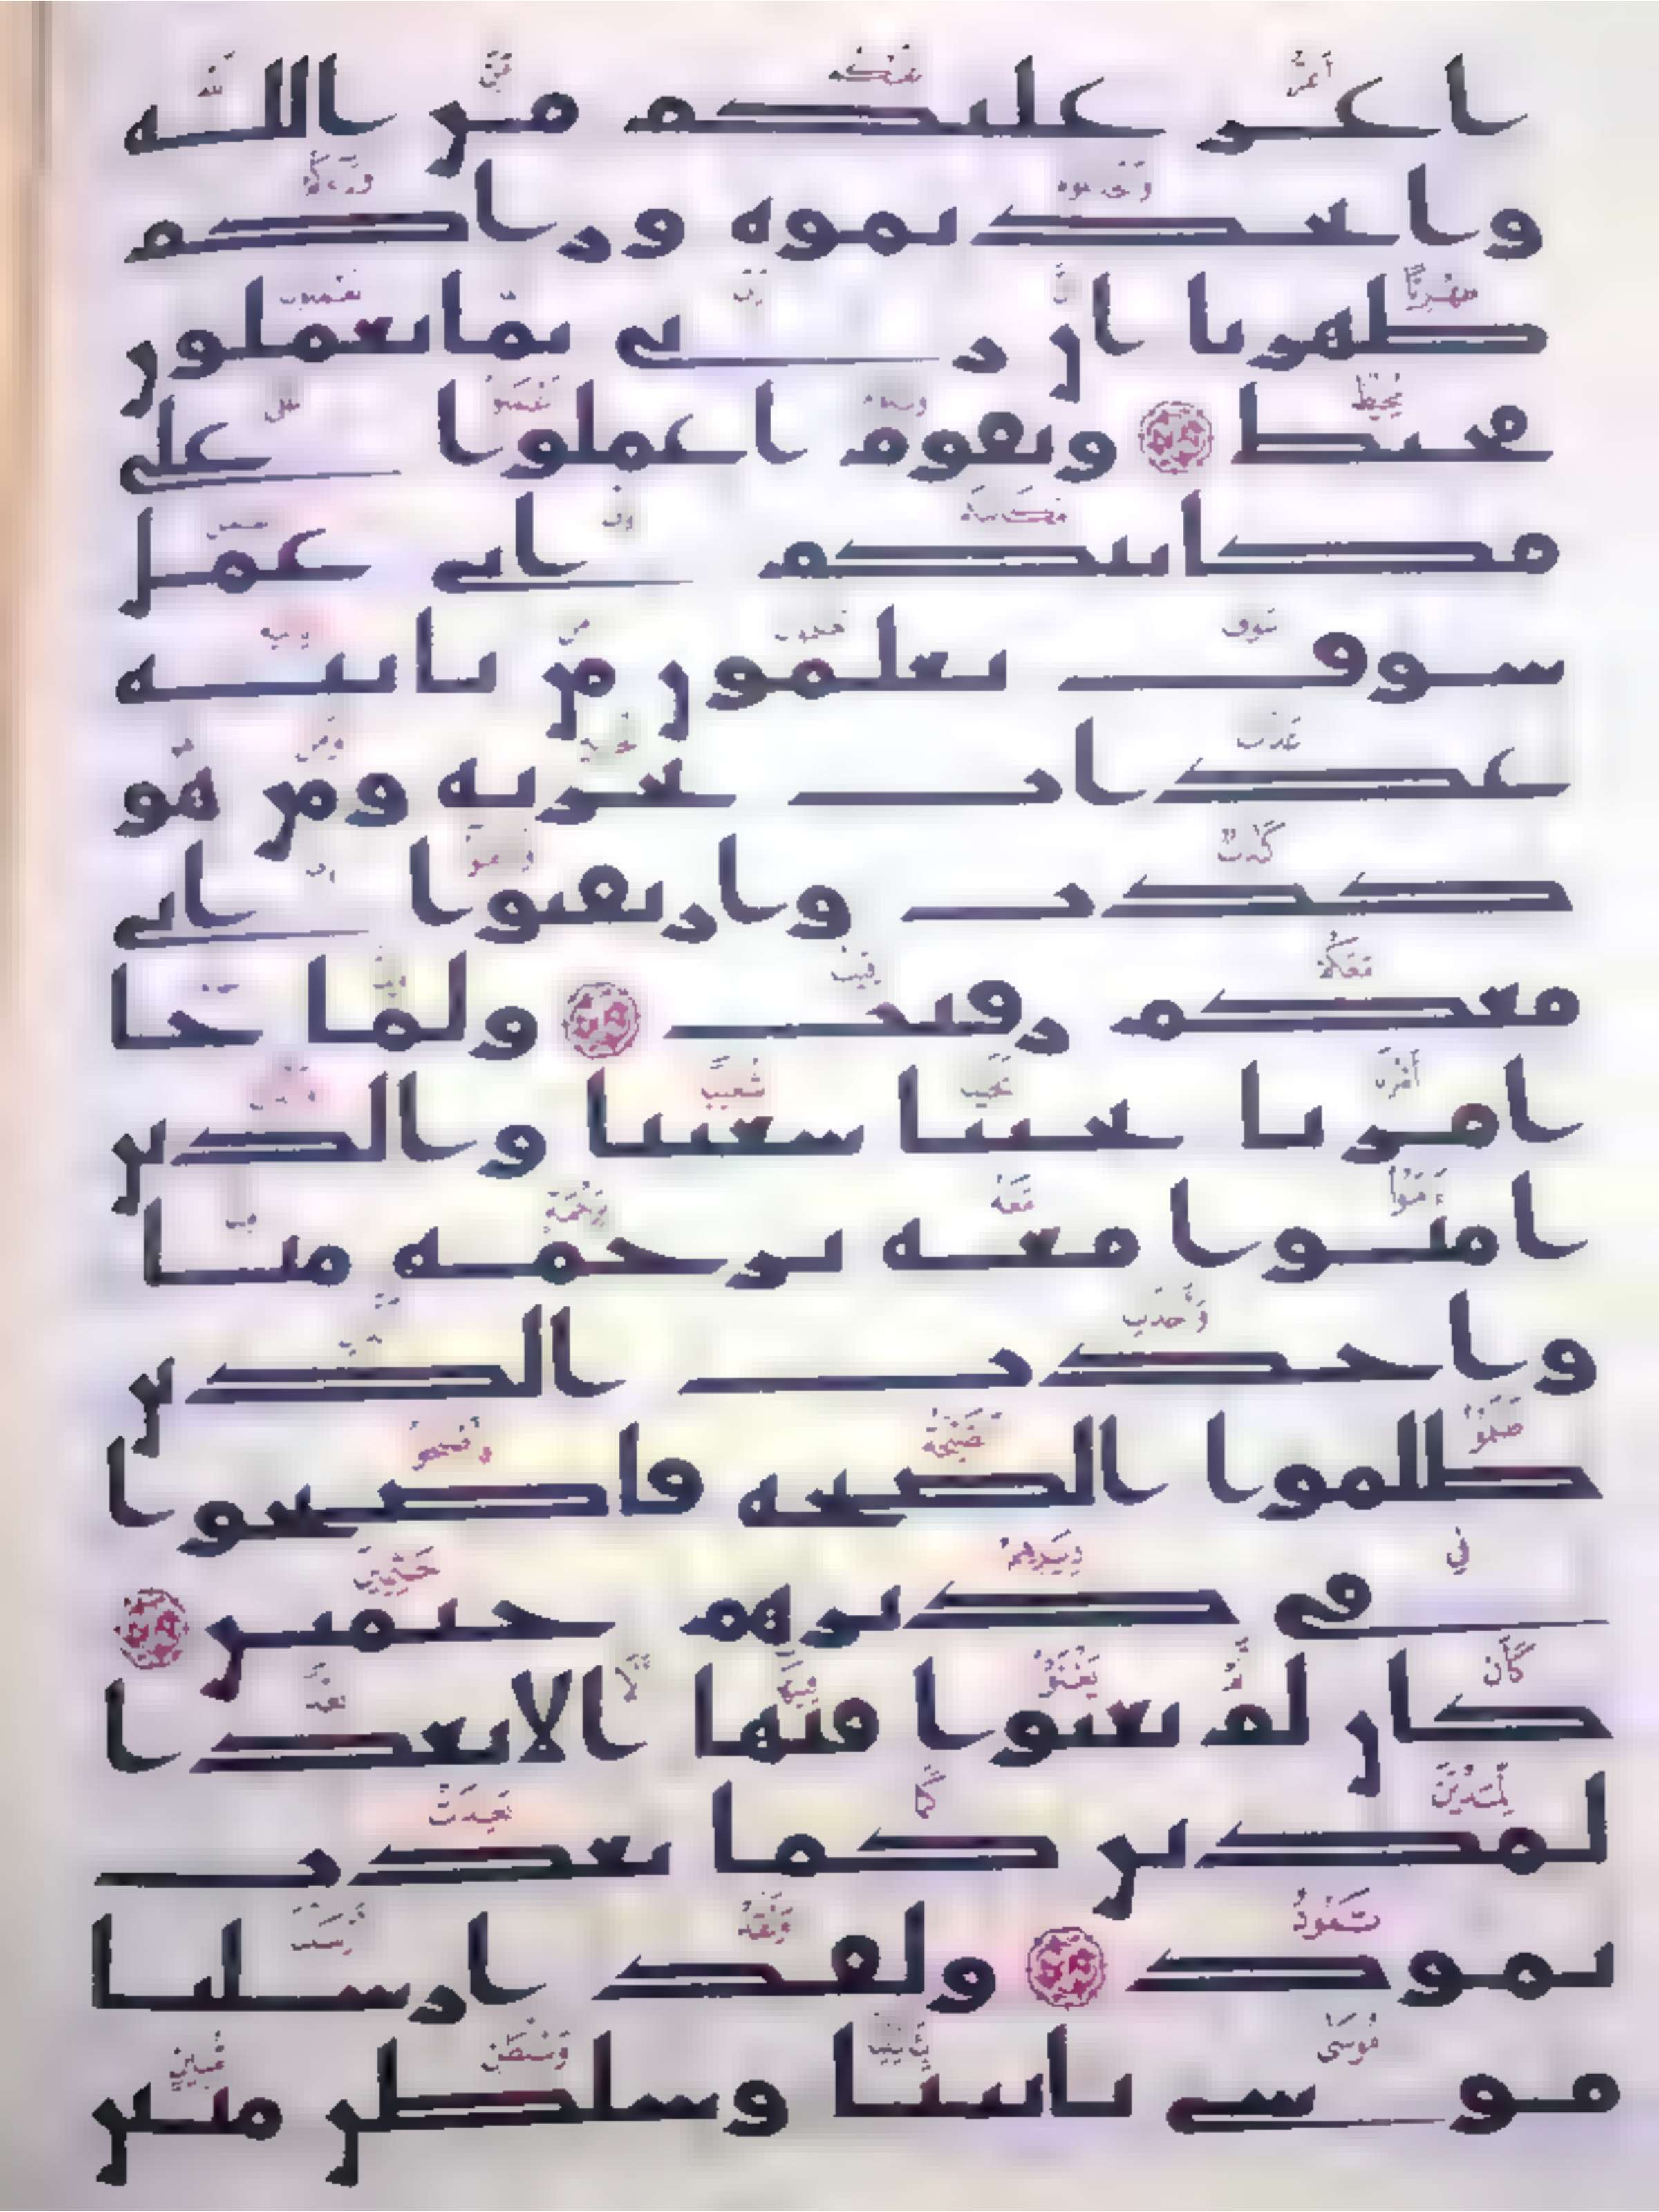 اعز عليكم من الله
واتخذتموه وراكم
ظهريا ان ربي بما تعملون
محيط ويقوم اعملوا على
مكانتكم اني عمل
سوف تعلمون من ياتيه
عذاب يخزيه ومن هو
كذب وارتقبوا اني
معكم رقيب ولما جا
امرنا نجينا شعيبا والذين
امنوا معه برحمه منا
واخذت الذين
ظلموا الصيحه فاصبحوا
في ديرهم جثمين
كان لم يغنوا فيها الا بعدا
لمدين كما بعدت
ثمود ولقد ارسلنا
موسى بايتنا وسلطن مبين